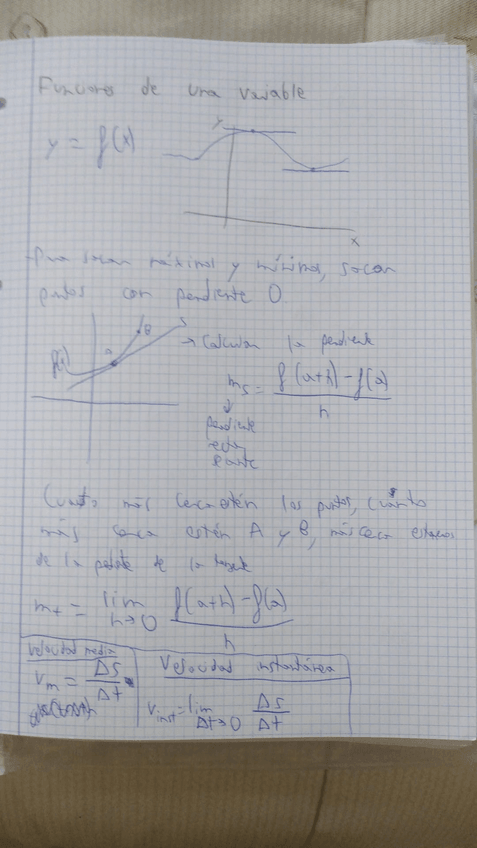 Funciones de una variable
y = f(x)
y
x
Para sacar máximos y mínimos, sacar
puntos con pendiente 0.
f(x)
a
B
s
→ Calcular la pendiente
m_s = f(a+h) - f(a) / h
pendiente
recta
secante
Cuanto más cerca estén los puntos, cuánto
más cerca estén A y B, más cerca estamos
de la pdte de la tangente
m_t = lim h→0 f(a+h) - f(a) / h
Velocidad media
v_m = Δs / Δt
Velocidad instantánea
v_inst = lim Δt→0 Δs / Δt